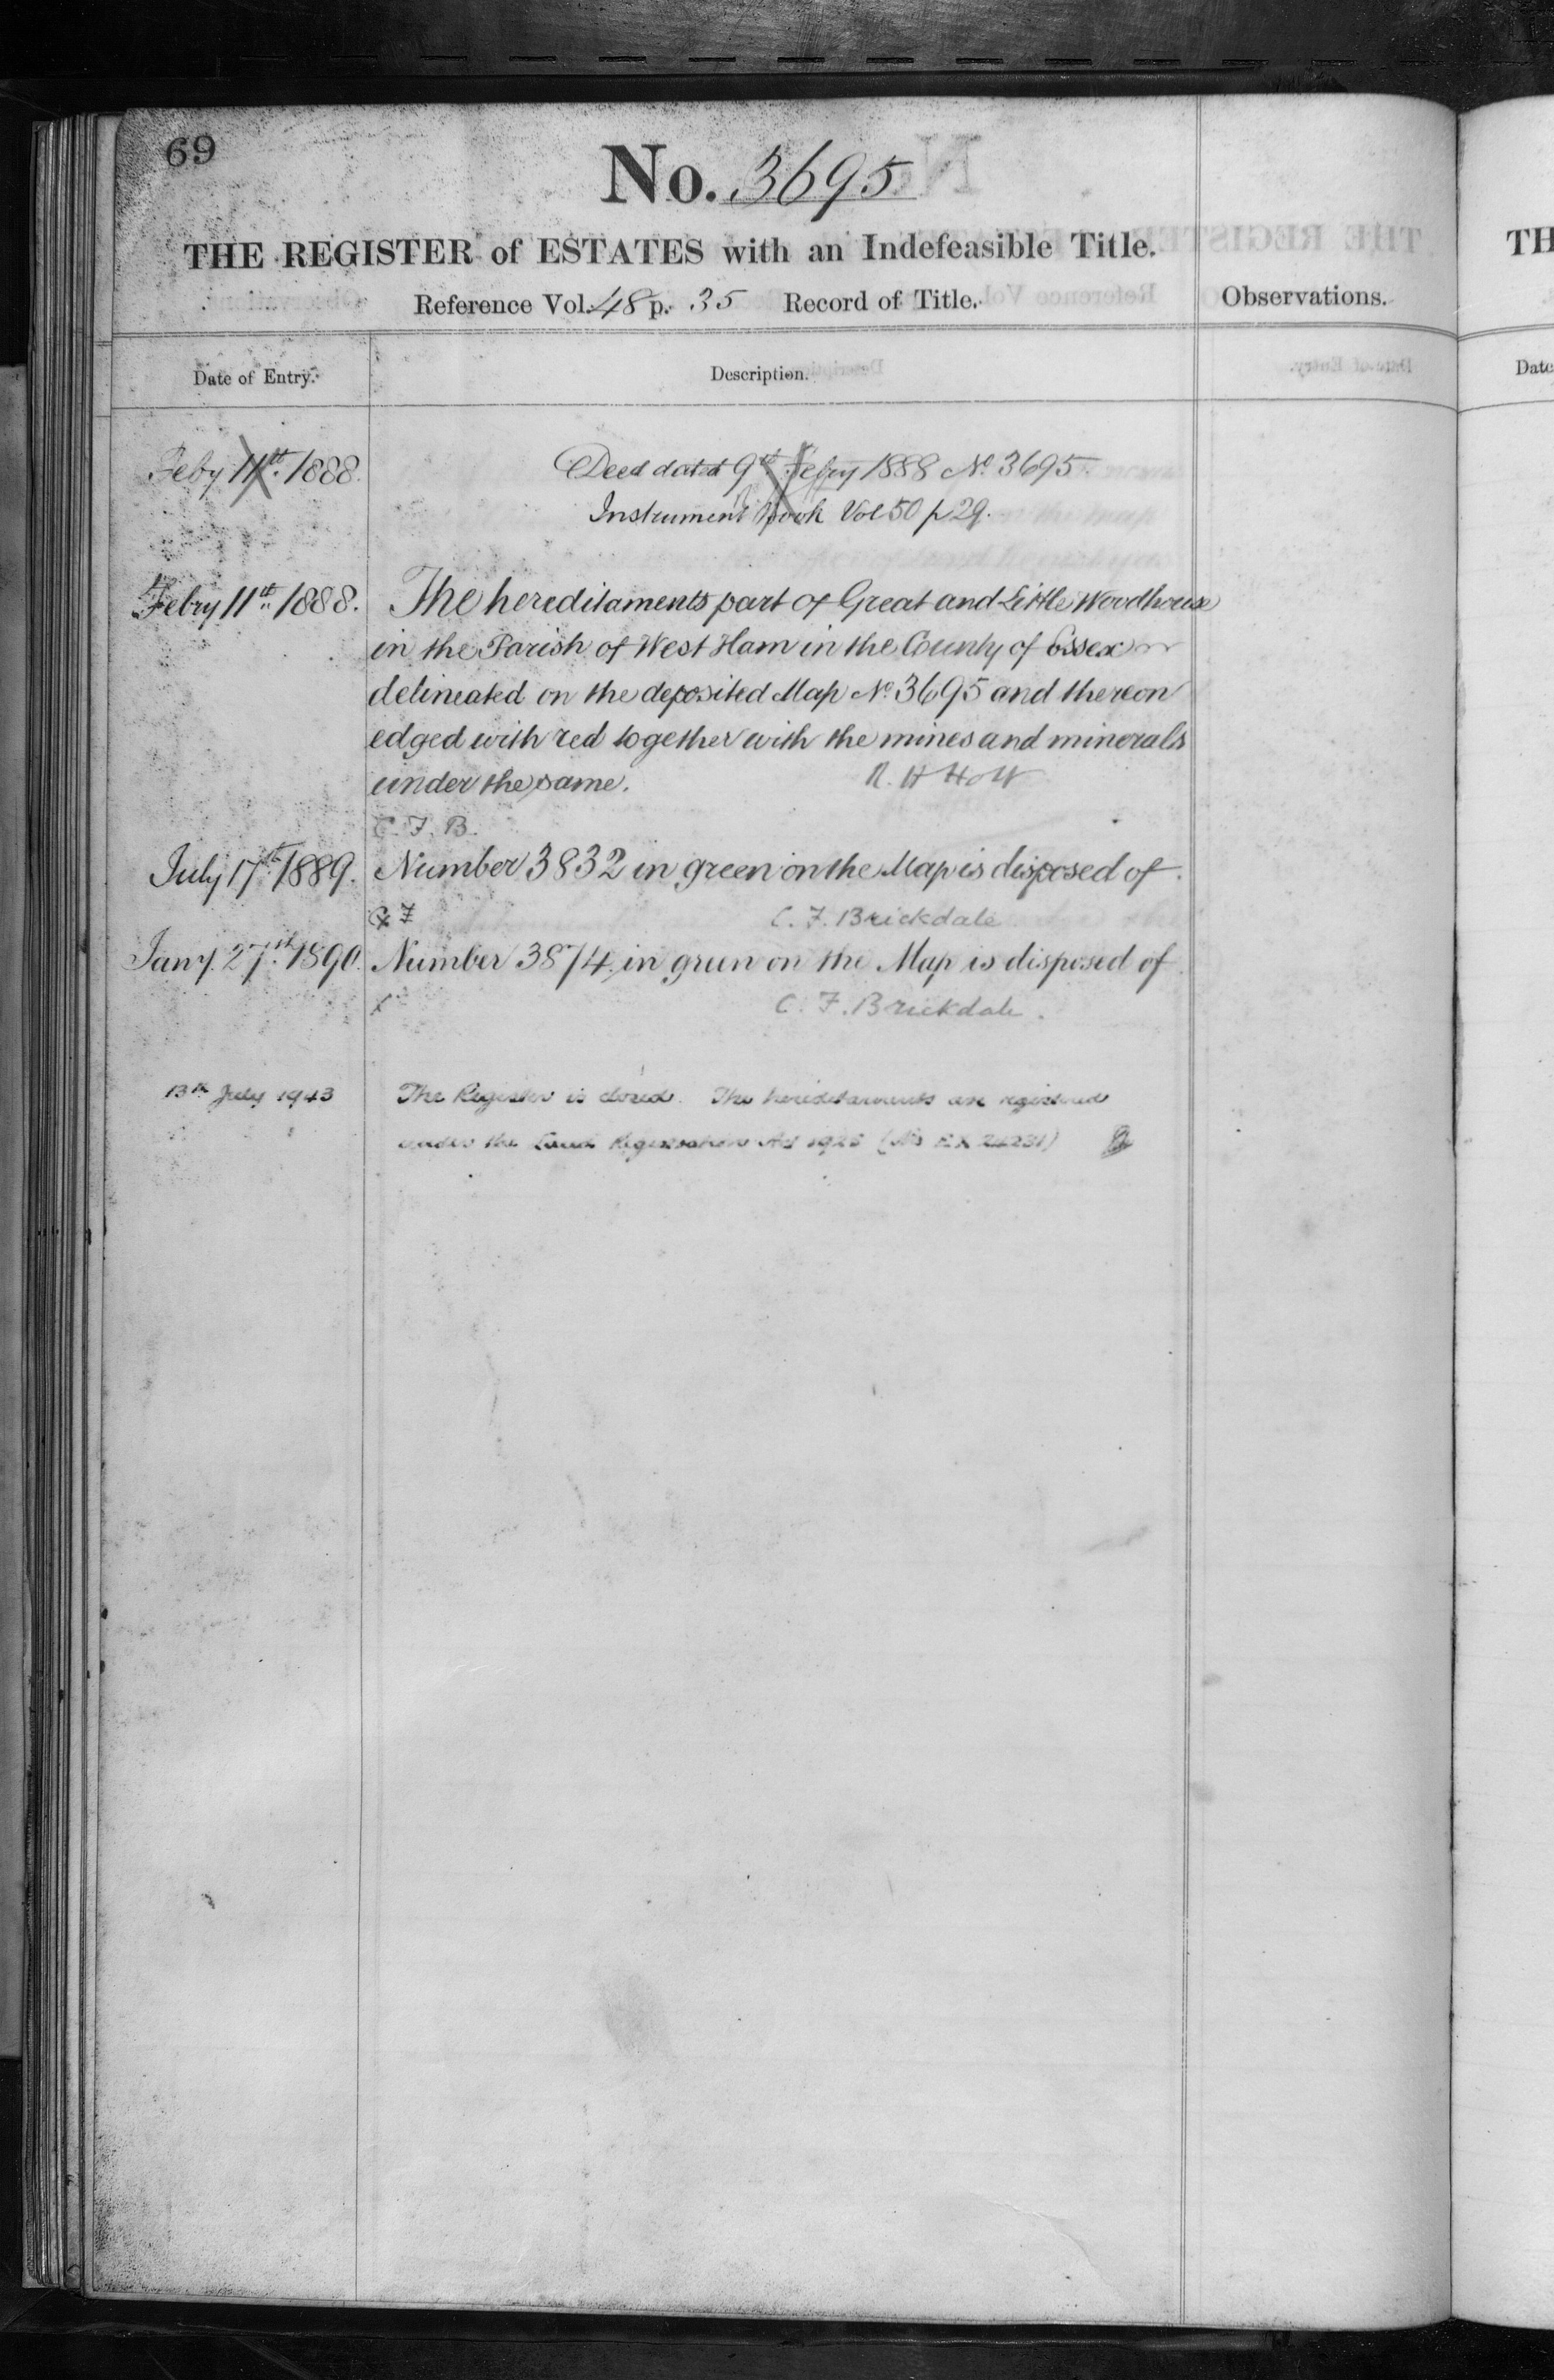 69
No. 3695
THE REGISTER of ESTATES with an Indefeasible Title.
Reference Vol. 48 p. 35 Record of Title.
Observations.
Date of Entry.
Description.
Feby 11th 1888. Deed dated 9th Febry 1888 No. 3695
Instrument book Vol 50 p 29.
Febry 11th 1888. The hereditaments part of Great and Little Woodhouse
in the Parish of West Ham in the County of Essex
delineated on the deposited Map No. 3695 and thereon
edged with red together with the mines and minerals
under the same. R. H Holt
C. F. B.
July 17th 1889. Number 3832 in green on the Map is disposed of.
C. F. Brickdale
Jany. 27th 1890. Number 3874 in green on the Map is disposed of.
C. F. Brickdale.
13th July 1943 The Register is closed. The hereditaments are registered
under the Land Registration Act 1925 (No EX
TH
Date